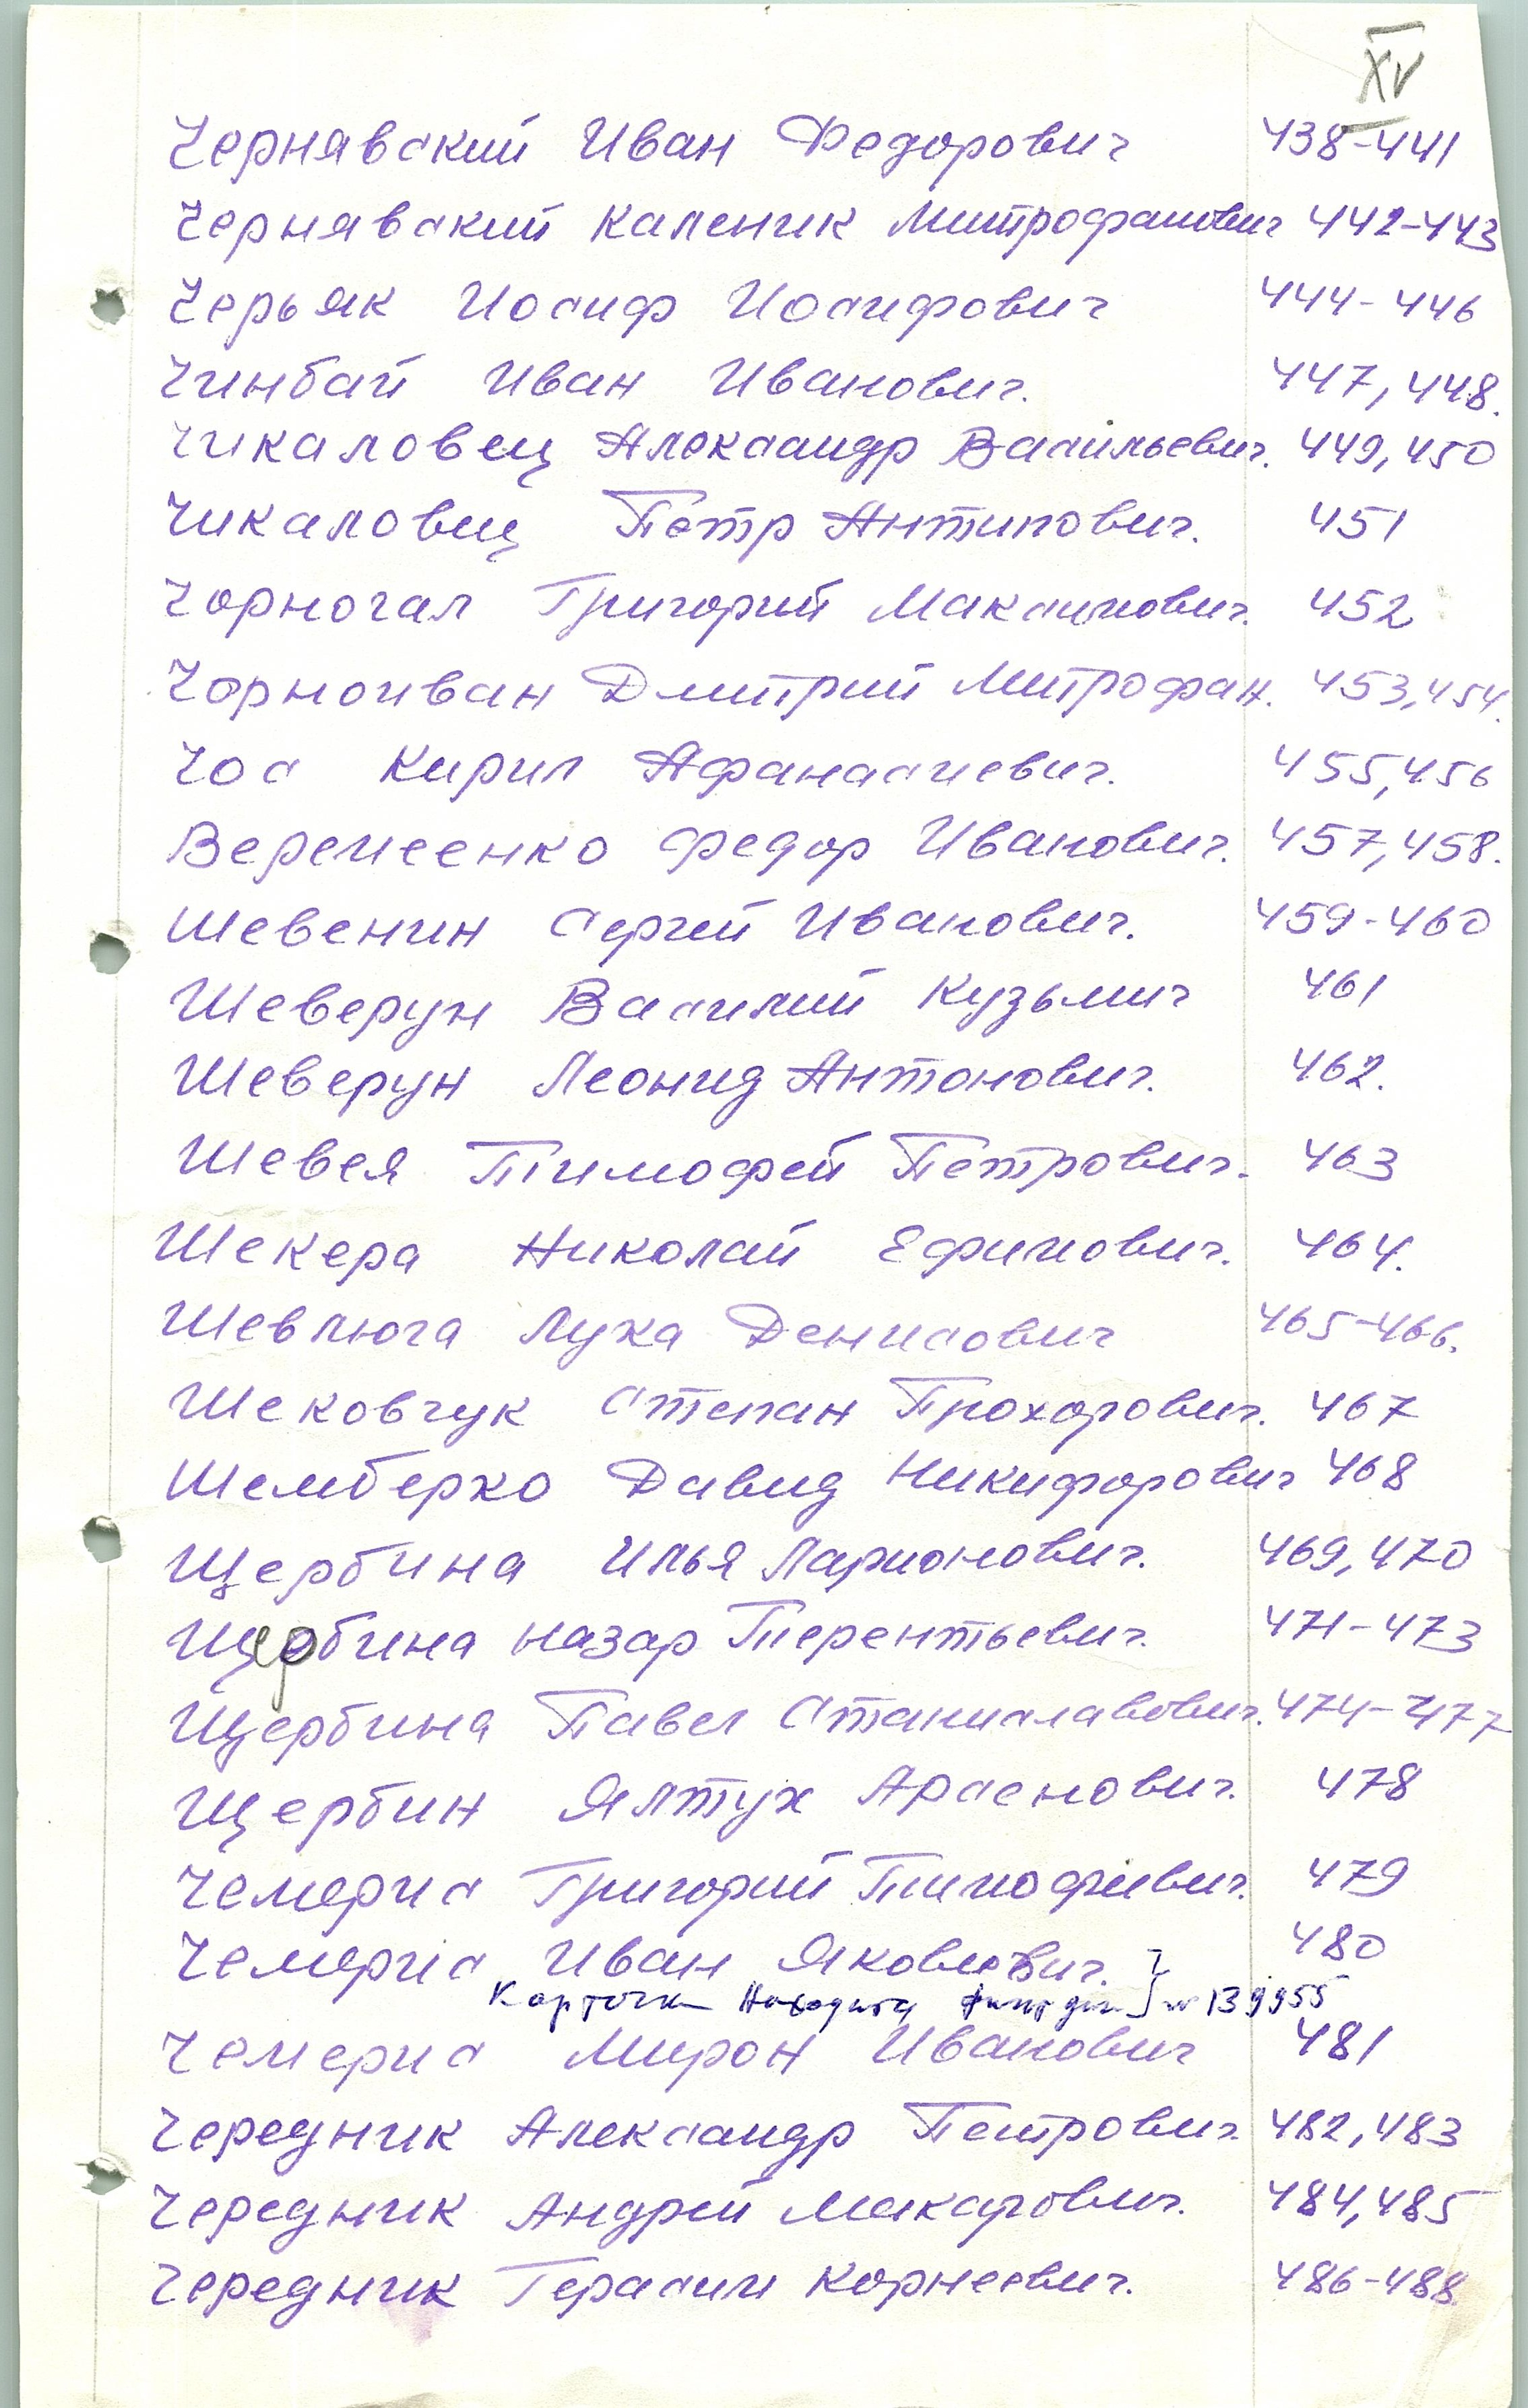 XV
Чернявский Иван Федорович 438-441
Чернявский Каленик Митрофанович 442-443
Черьяк Иосиф Иосифович 444-446
Чинбай Иван Иванович. 447, 448.
Чикаловец Александр Васильевич. 449, 450
Чикаловец Петр Антипович. 451
Чорногал Григорий Максимович. 452
Чорноиван Дмитрий Митрофан. 453, 454.
Чос Кирил Афанасиевич. 455, 456
Веремеенко Федор Иванович. 457, 458.
Шевенин Сергей Иванович. 459-460
Шеверун Василий Кузьмич 461
Шеверун Леонид Антонович. 462.
Шевея Тимофей Петрович. 463
Шекера Николай Ефимович. 464.
Шевлюга Лука Денисович 465-466.
Шековчук Степан Прохорович. 467
Шемберко Давид Никифорович 468
Щербина Илья Ларионович. 469, 470
Щербина Назар Терентьевич. 471-473
Щербина Павел Станиславович. 474-477
Щербин Ялтух Арсенович. 478
Чемерис Григорий Тимофеевич. 479
Чемерис Иван Яковлевич. 480
Карточка находится 139955
Чемерис Мирон Иванович 481
Чередник Александр Петрович 482, 483
Чередник Андрей Макарович. 484, 485
Чередник Герасим Корнеевич. 486-488